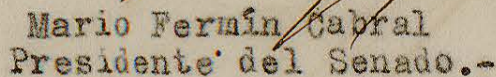 Mario Fermín Cabral
Presidente del Senado.-